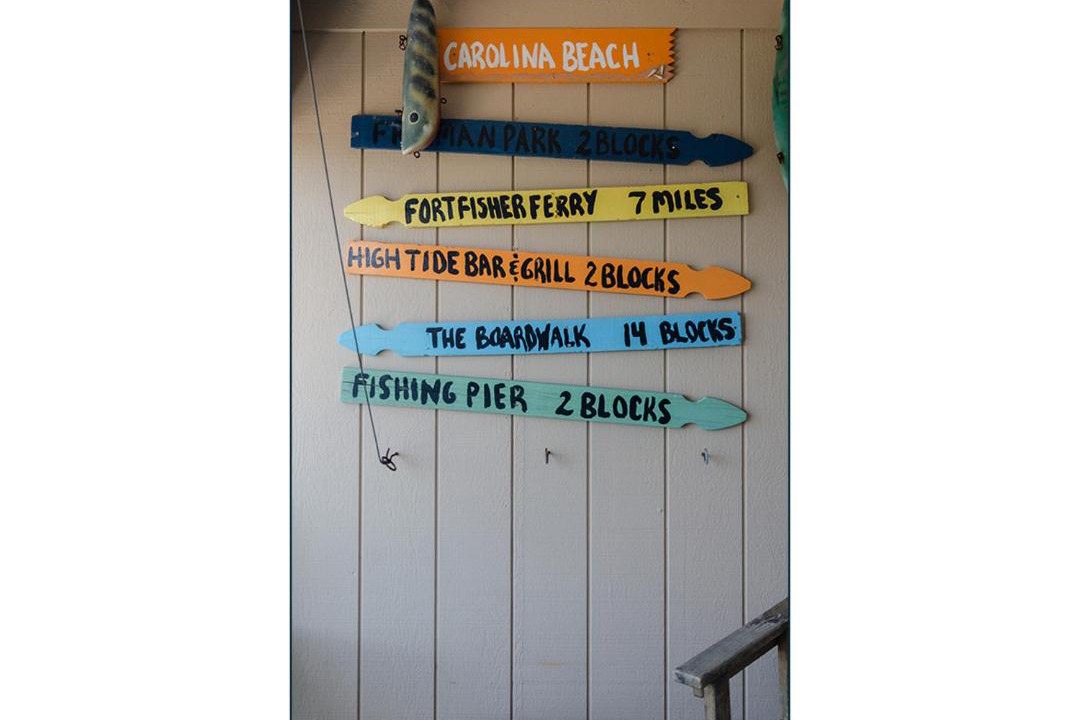 CAROLINA BEACH
PARK 2 BLOCKS
FORT FISHER FERRY 7 MILES
HIGH TIDE BAR & GRILL 2 BLOCKS
THE BOARDWALK 14 BLOCKS
FISHING PIER 2 BLOCKS